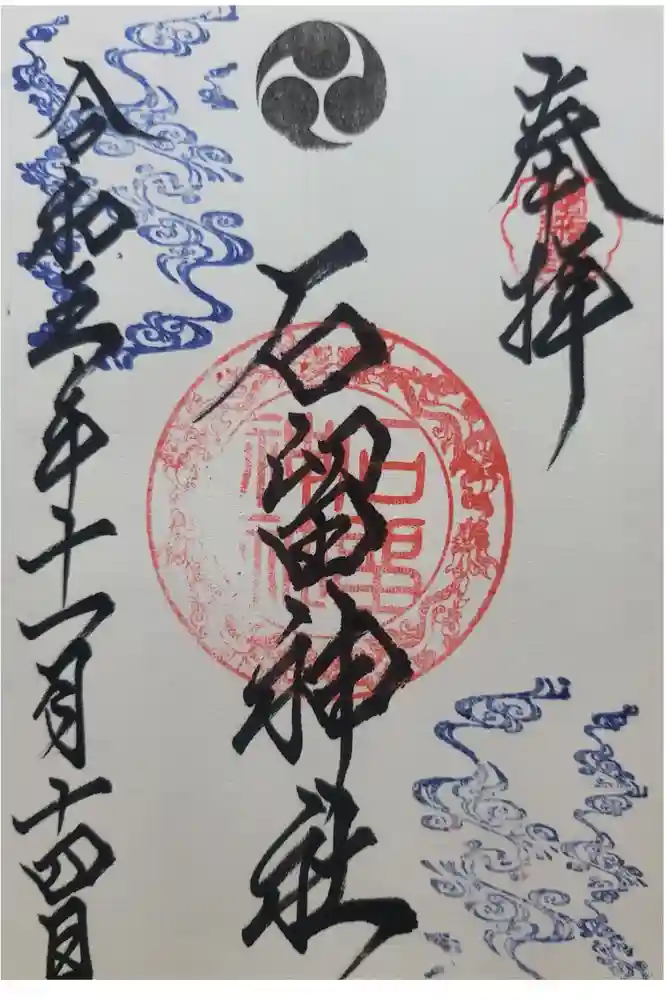 奉拝
石留神社
令和五年十一月十四日